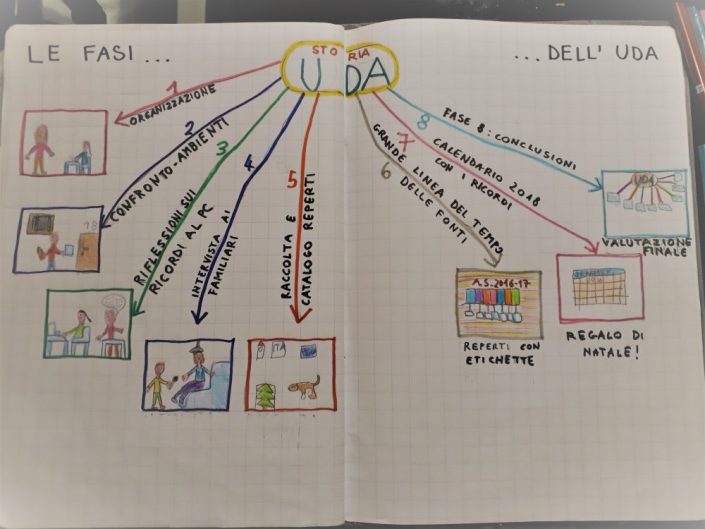 LE FASI ...
... DELL' UDA
STORIA
UDA
1
ORGANIZZAZIONE
2
CONFRONTO-AMBIENTI
3
RIFLESSIONI SUI
RICORDI AL PC
4
INTERVISTA AI
FAMILIARI
5
RACCOLTA E
CATALOGO REPERTI
6
GRANDE LINEA DEL TEMPO
DELLE FONTI
7
CALENDARIO 2018
CON I RICORDI
8
FASE 8: CONCLUSIONI
UDA
VALUTAZIONE
FINALE
A.S. 2016-17
REPERTI CON
ETICHETTE
REGALO DI
NATALE!